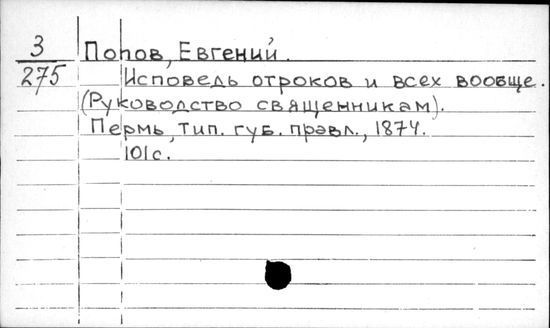 3 Попов, Евгений.
275 Исповедь отроков и всех вообще.
(Руководство священникам).
Пермь, тип. губ. правл., 1874.
101с.